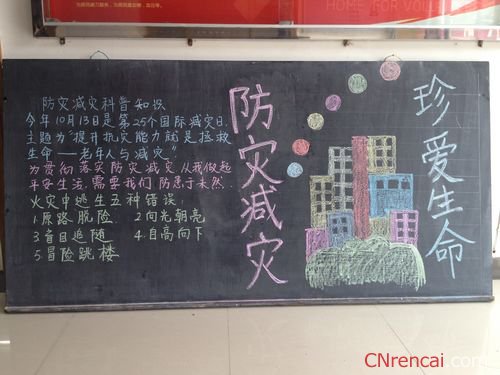 HOME FOR VOLU
防灾减灾科普知识
今年10月13日是第25个国际减灾日.
主题为"提升抗灾能力就是拯救
生命——老年人与减灾"
为贯彻落实防灾减灾从我做起
平安生活,需要我们防患于未然.
火灾中逃生五种错误
1.原路脱险 2向光朝亮
3盲目追随 4.自高向下
5冒险跳楼
防灾减灾
珍爱生命
CNrencai.com